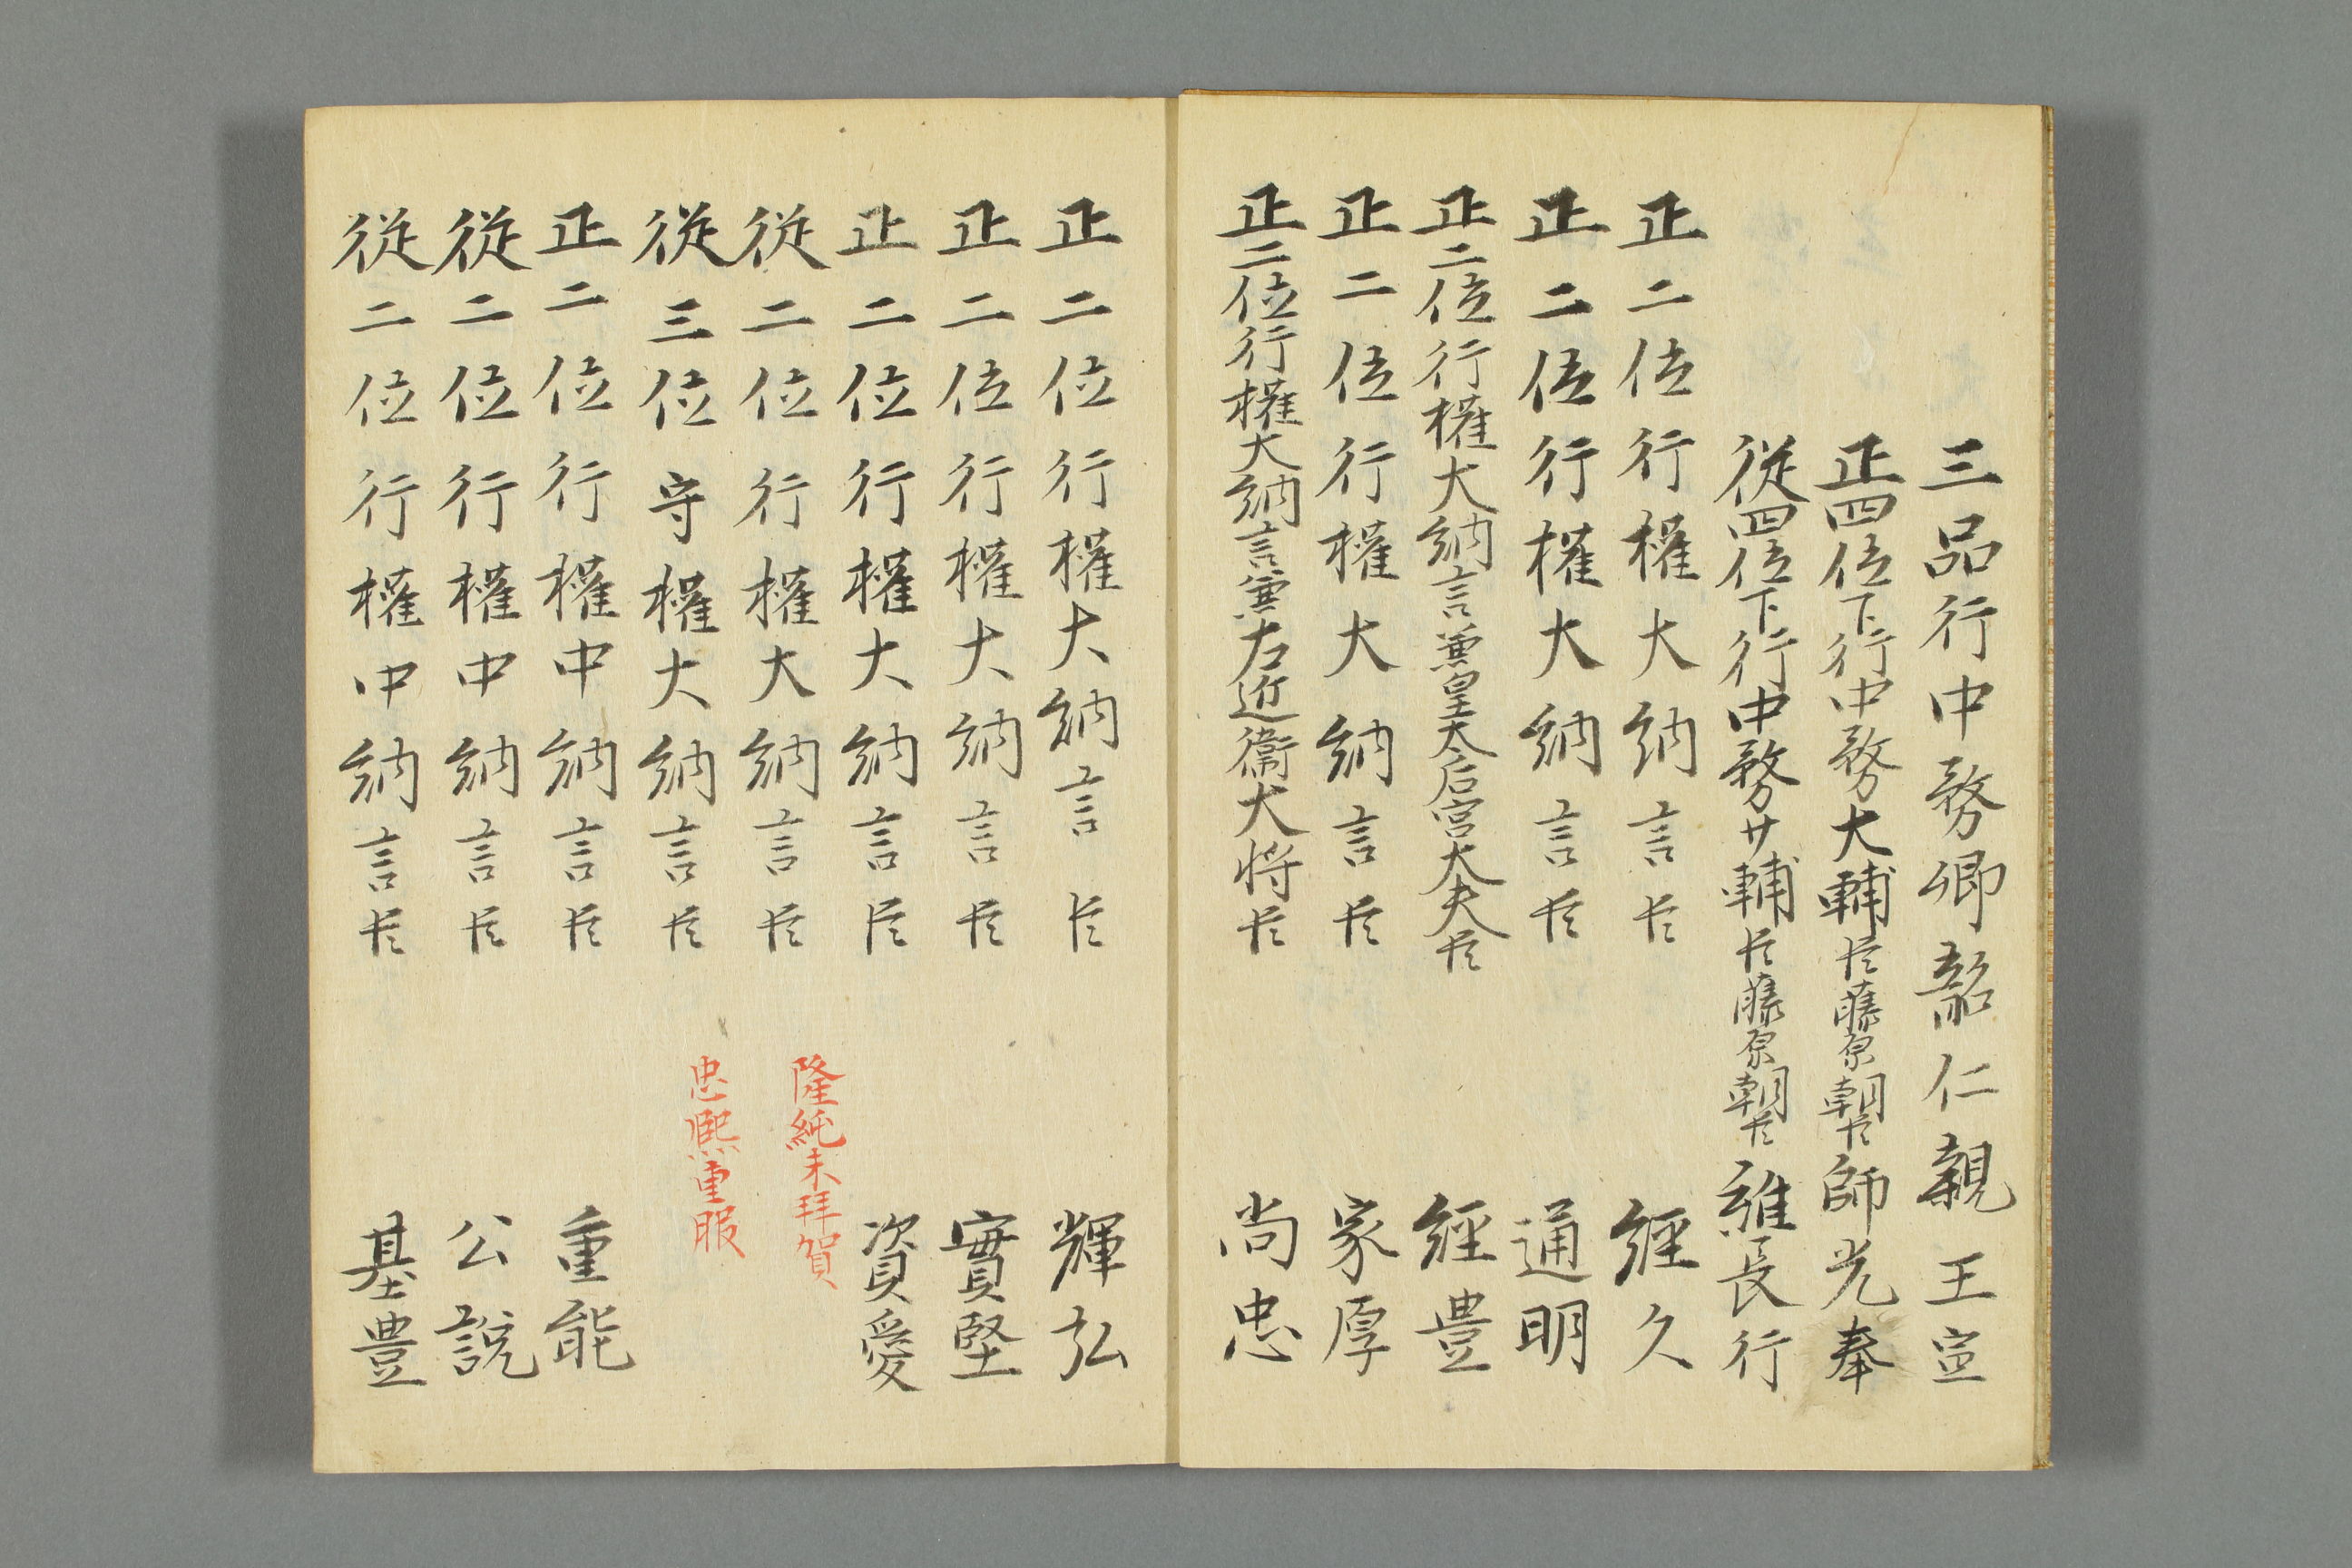 三品行中務卿韶仁親王宣
正四位下行中務大輔臣藤原朝臣師光奉
從四位下行中務少輔臣藤原朝臣維長行
正二位行權大納言臣 經久
正二位行權大納言臣 通明
正二位行權大納言兼皇太后宮大夫臣 經豊
正二位行權大納言臣 家厚
正二位行權大納言兼左近衞大将臣 尚忠
正二位行權大納言臣 輝弘
正二位行權大納言臣 實堅
正二位行權大納言臣 資愛
從二位行權大納言臣 隆純未拜賀
從三位守權大納言臣 忠熈重服
正二位行權中納言臣 重能
從二位行權中納言臣 公說
從二位行權中納言臣 基豊